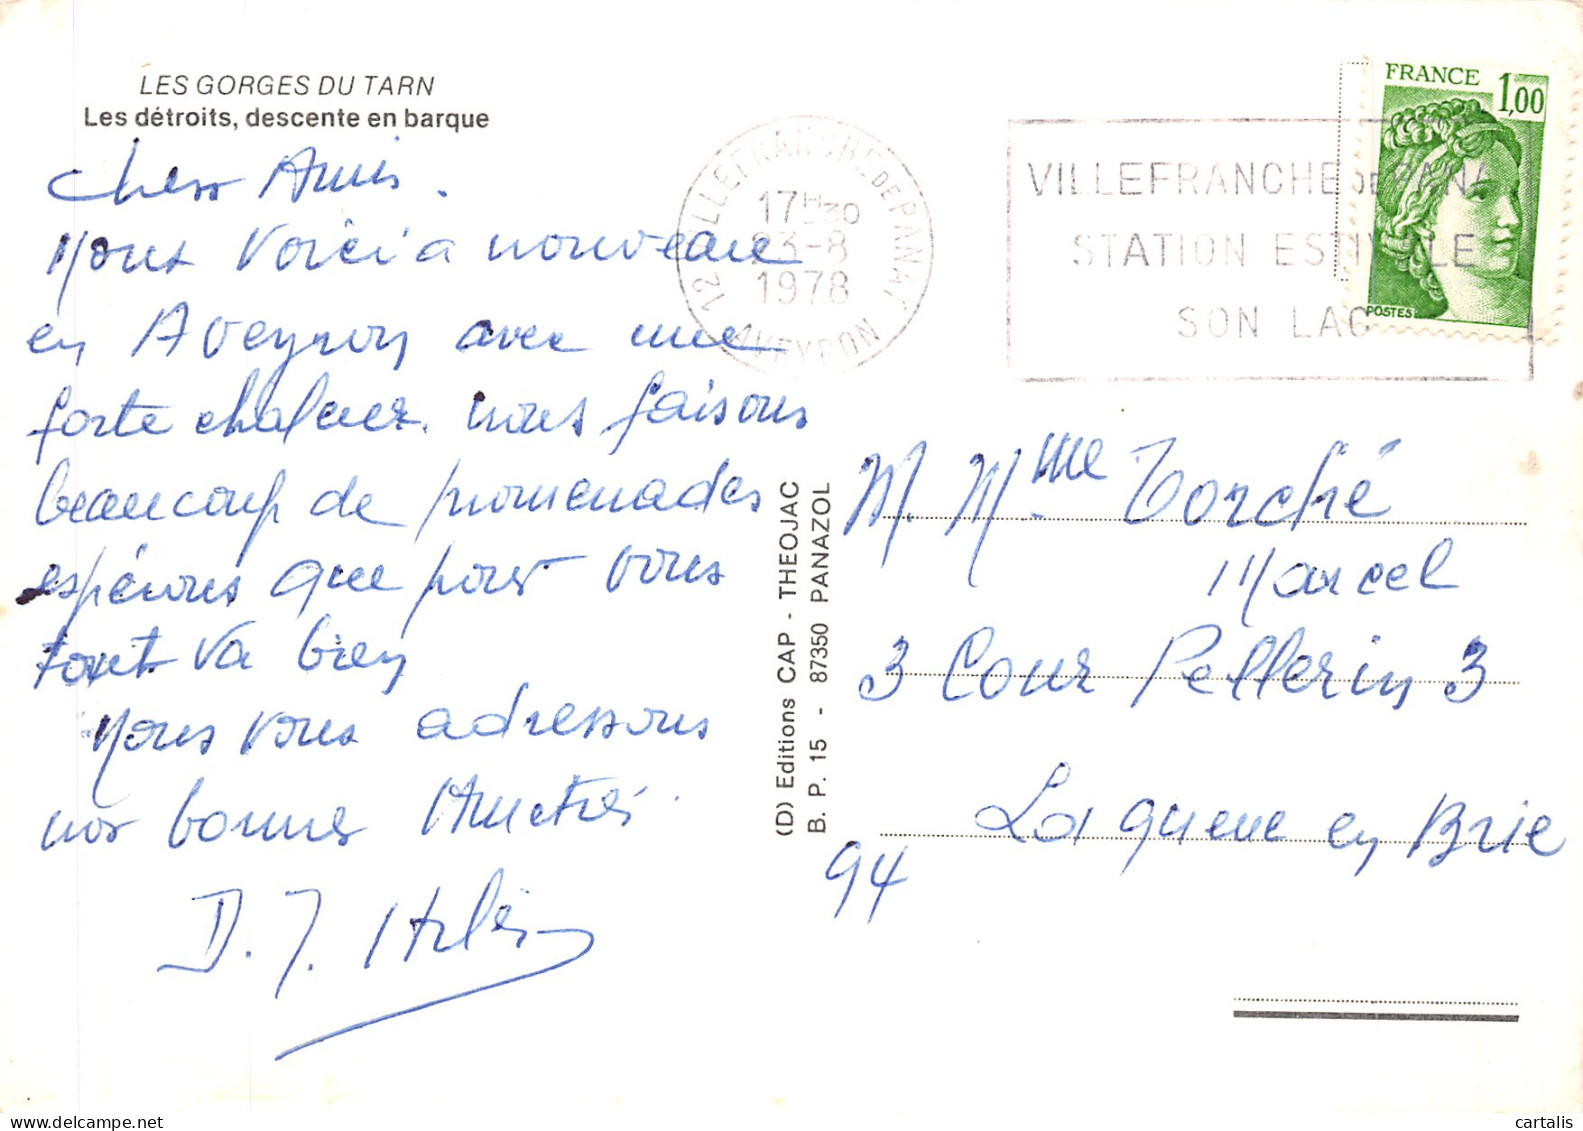 LES GORGES DU TARN
Les détroits, descente en barque
Chers Amis.
Nous voici a nouveau
en Aveyron avec une
forte chaleur. nous faisons
beaucoup de promenades
espérons que pour vous
tout va bien
Nous vous adressons
nos bonnes Amitiés.
D. J.
12 VILLEFRANCHE DE PANAT
17H30
23-8
1978
AVEYRON
VILLEFRANCHE DE PANA
STATION ESTIVALE
SON LAC
FRANCE 1,00
POSTES
(D) Editions CAP - THEOJAC
B. P. 15 - 87350 PANAZOL
M. Mme Torché
Marcel
3 Cour Pellerin 3
La queue en Brie
94
cartalis